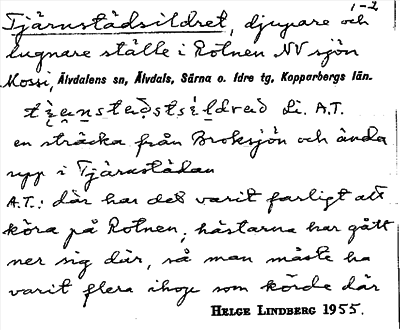 1-2
Tjärnstädsildret, djupare och
lugnare ställe i Rotnen NV sjön
Mossi, Älvdalens sn, Älvdals, Särna o. Idre tg, Kopparbergs län.
Li. A.T.
en sträcka från Broksjön och ända
upp i Tjärnstädan
A.T.: där har det varit farligt att
köra på Rotnen; hästarna har gått
ner sig där, så man måste ha
varit flera ihop som körde där
HELGE LINDBERG 1955.